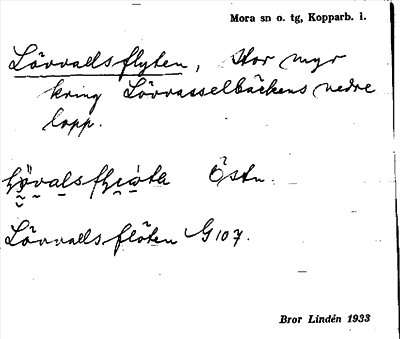 Mora sn o. tg, Kopparb. l.
Lövvadsflyten, Stor myr
kring Lövvasselbäckens nedre
lopp.
Östn.
Lövvads flöten G 107.
Bror Lindén 1933